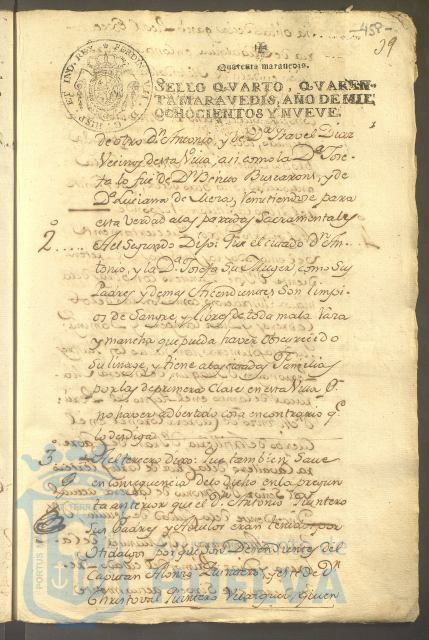 -458-
39
Quarenta marauedis.
SELLO QVARTO, QVAREN-
TA MARAVEDIS, AÑO DE MIL
OCHOCIENTOS Y NVEVE.
de otro Dn. Antonio, y de Da. Ysavel Diaz
Vecinos de esta Villa, asi como la Da. Jose-
fa lo fue de Dn. Benito Buscarons, y de
Da. Luciana de Meras, remitiendose para
esta verdad a las partidas Sacramentales
2o..... A el segundo Dixo: Que el citado Dn. An-
tonio, y la Da. Josefa su Muger, como sus
Padres y demas Ascendientes son limpi-
os de Sangre, y libres de toda mala raza
y mancha que pueda haver obscurecido
su linage, y tiene a las citadas Familias
por las de primera Clase en esta Villa
no haver advertido cosa en contrario qe.
lo desdiga
3o. A el tercero Dixo: Que tambien save
en consequencia de lo dicho en la pregun-
ta anterior que el D. Antonio Quintero
sus Padres y Abuelos eran tenidos por
Hidalgos, porque son Desendientes del
Capitan Alonso Quintero, y este de Dn.
Christoval Quintero Velazquez, quien